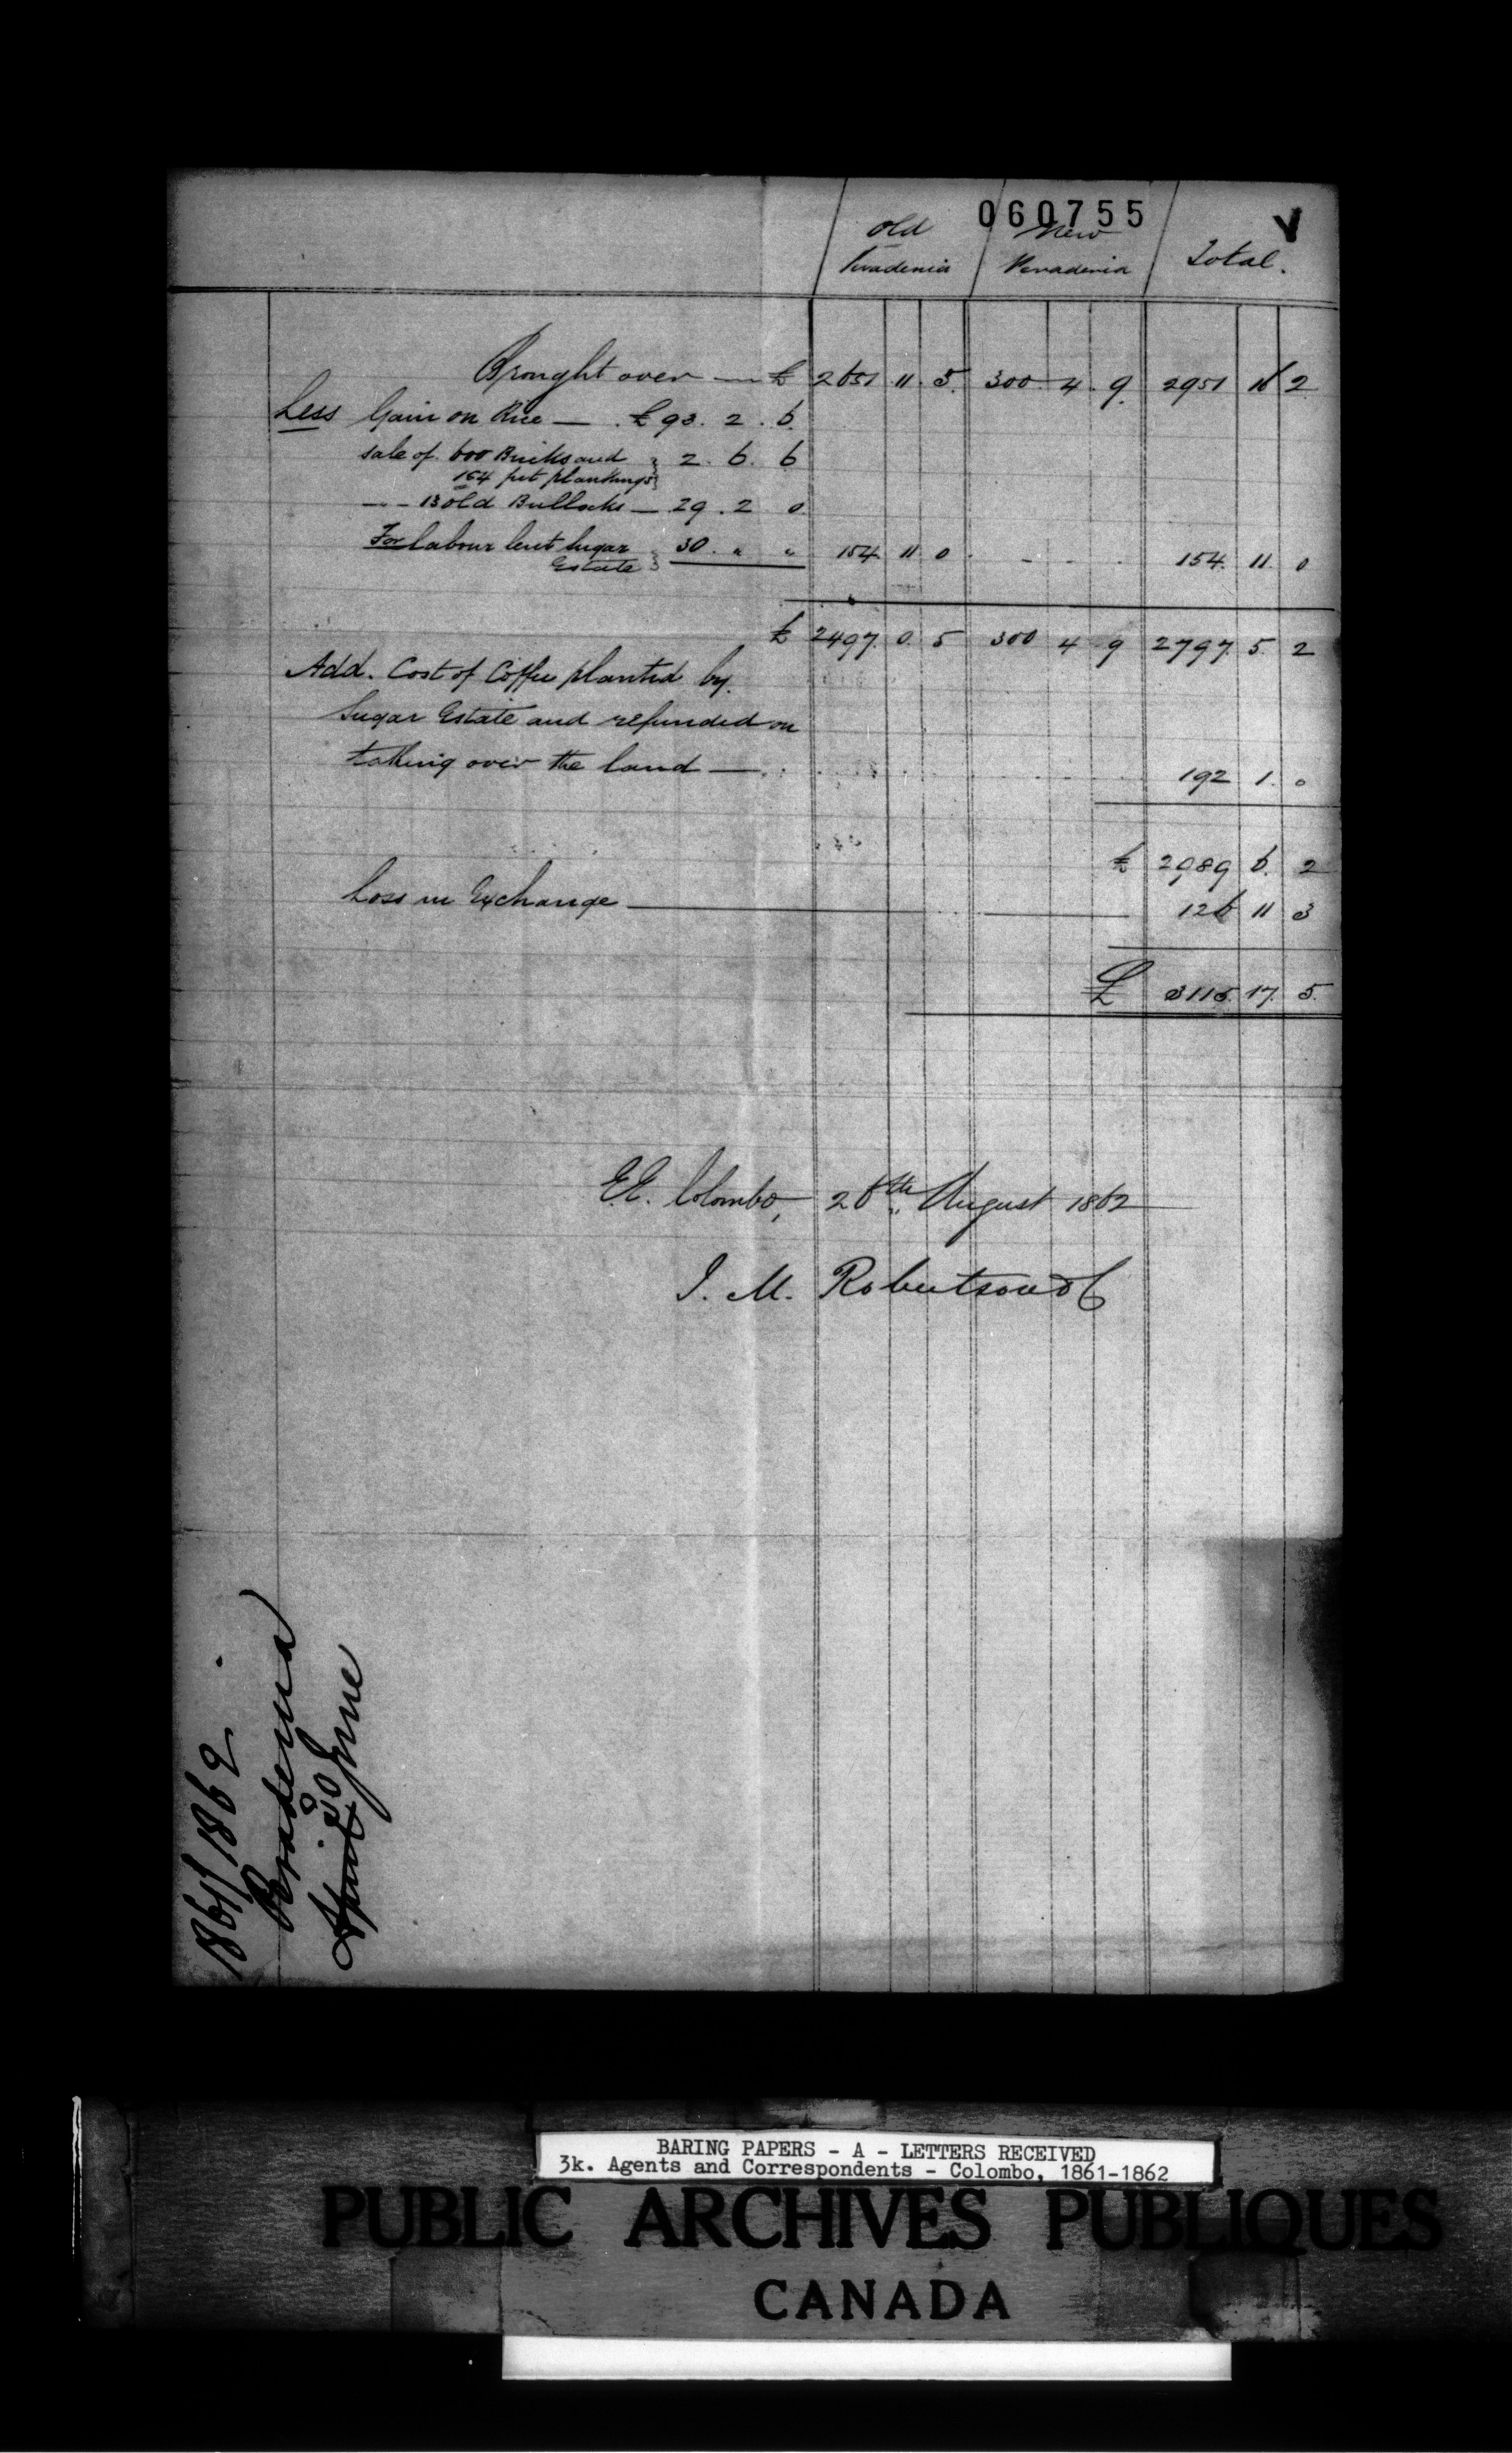 060755
Old New Total.
Peradenia Peradenia
Brought over — £ 2651 11 5. 300 4 9. 2951 16 2
Less Gain on Rice — . £ 93. 2. 6.
sale of 600 Bricks and } 2. 6. 6
164 feet plankings }
" - 13 old Bullocks — 29. 2 0
For labour lent Sugar } 30. " " 154 11 0 - - - 154. 11. 0
Estate }
£ 2497. 0. 5 300 4 9 2797. 5. 2
Add. Cost of Coffee planted by.
Sugar Estate and refunded on
taking over the land — 192 1. 0
£ 2989 6. 2
Loss in Exchange — 126 11 3
£ 3115. 17. 5.
E.E. Colombo, 26th August 1862
J. M. Robertson & Co
1861/1862.
Peradenia
April 30 June
BARING PAPERS - A - LETTERS RECEIVED
3k. Agents and Correspondents - Colombo, 1861-1862
PUBLIC ARCHIVES PUBLIQUES
CANADA